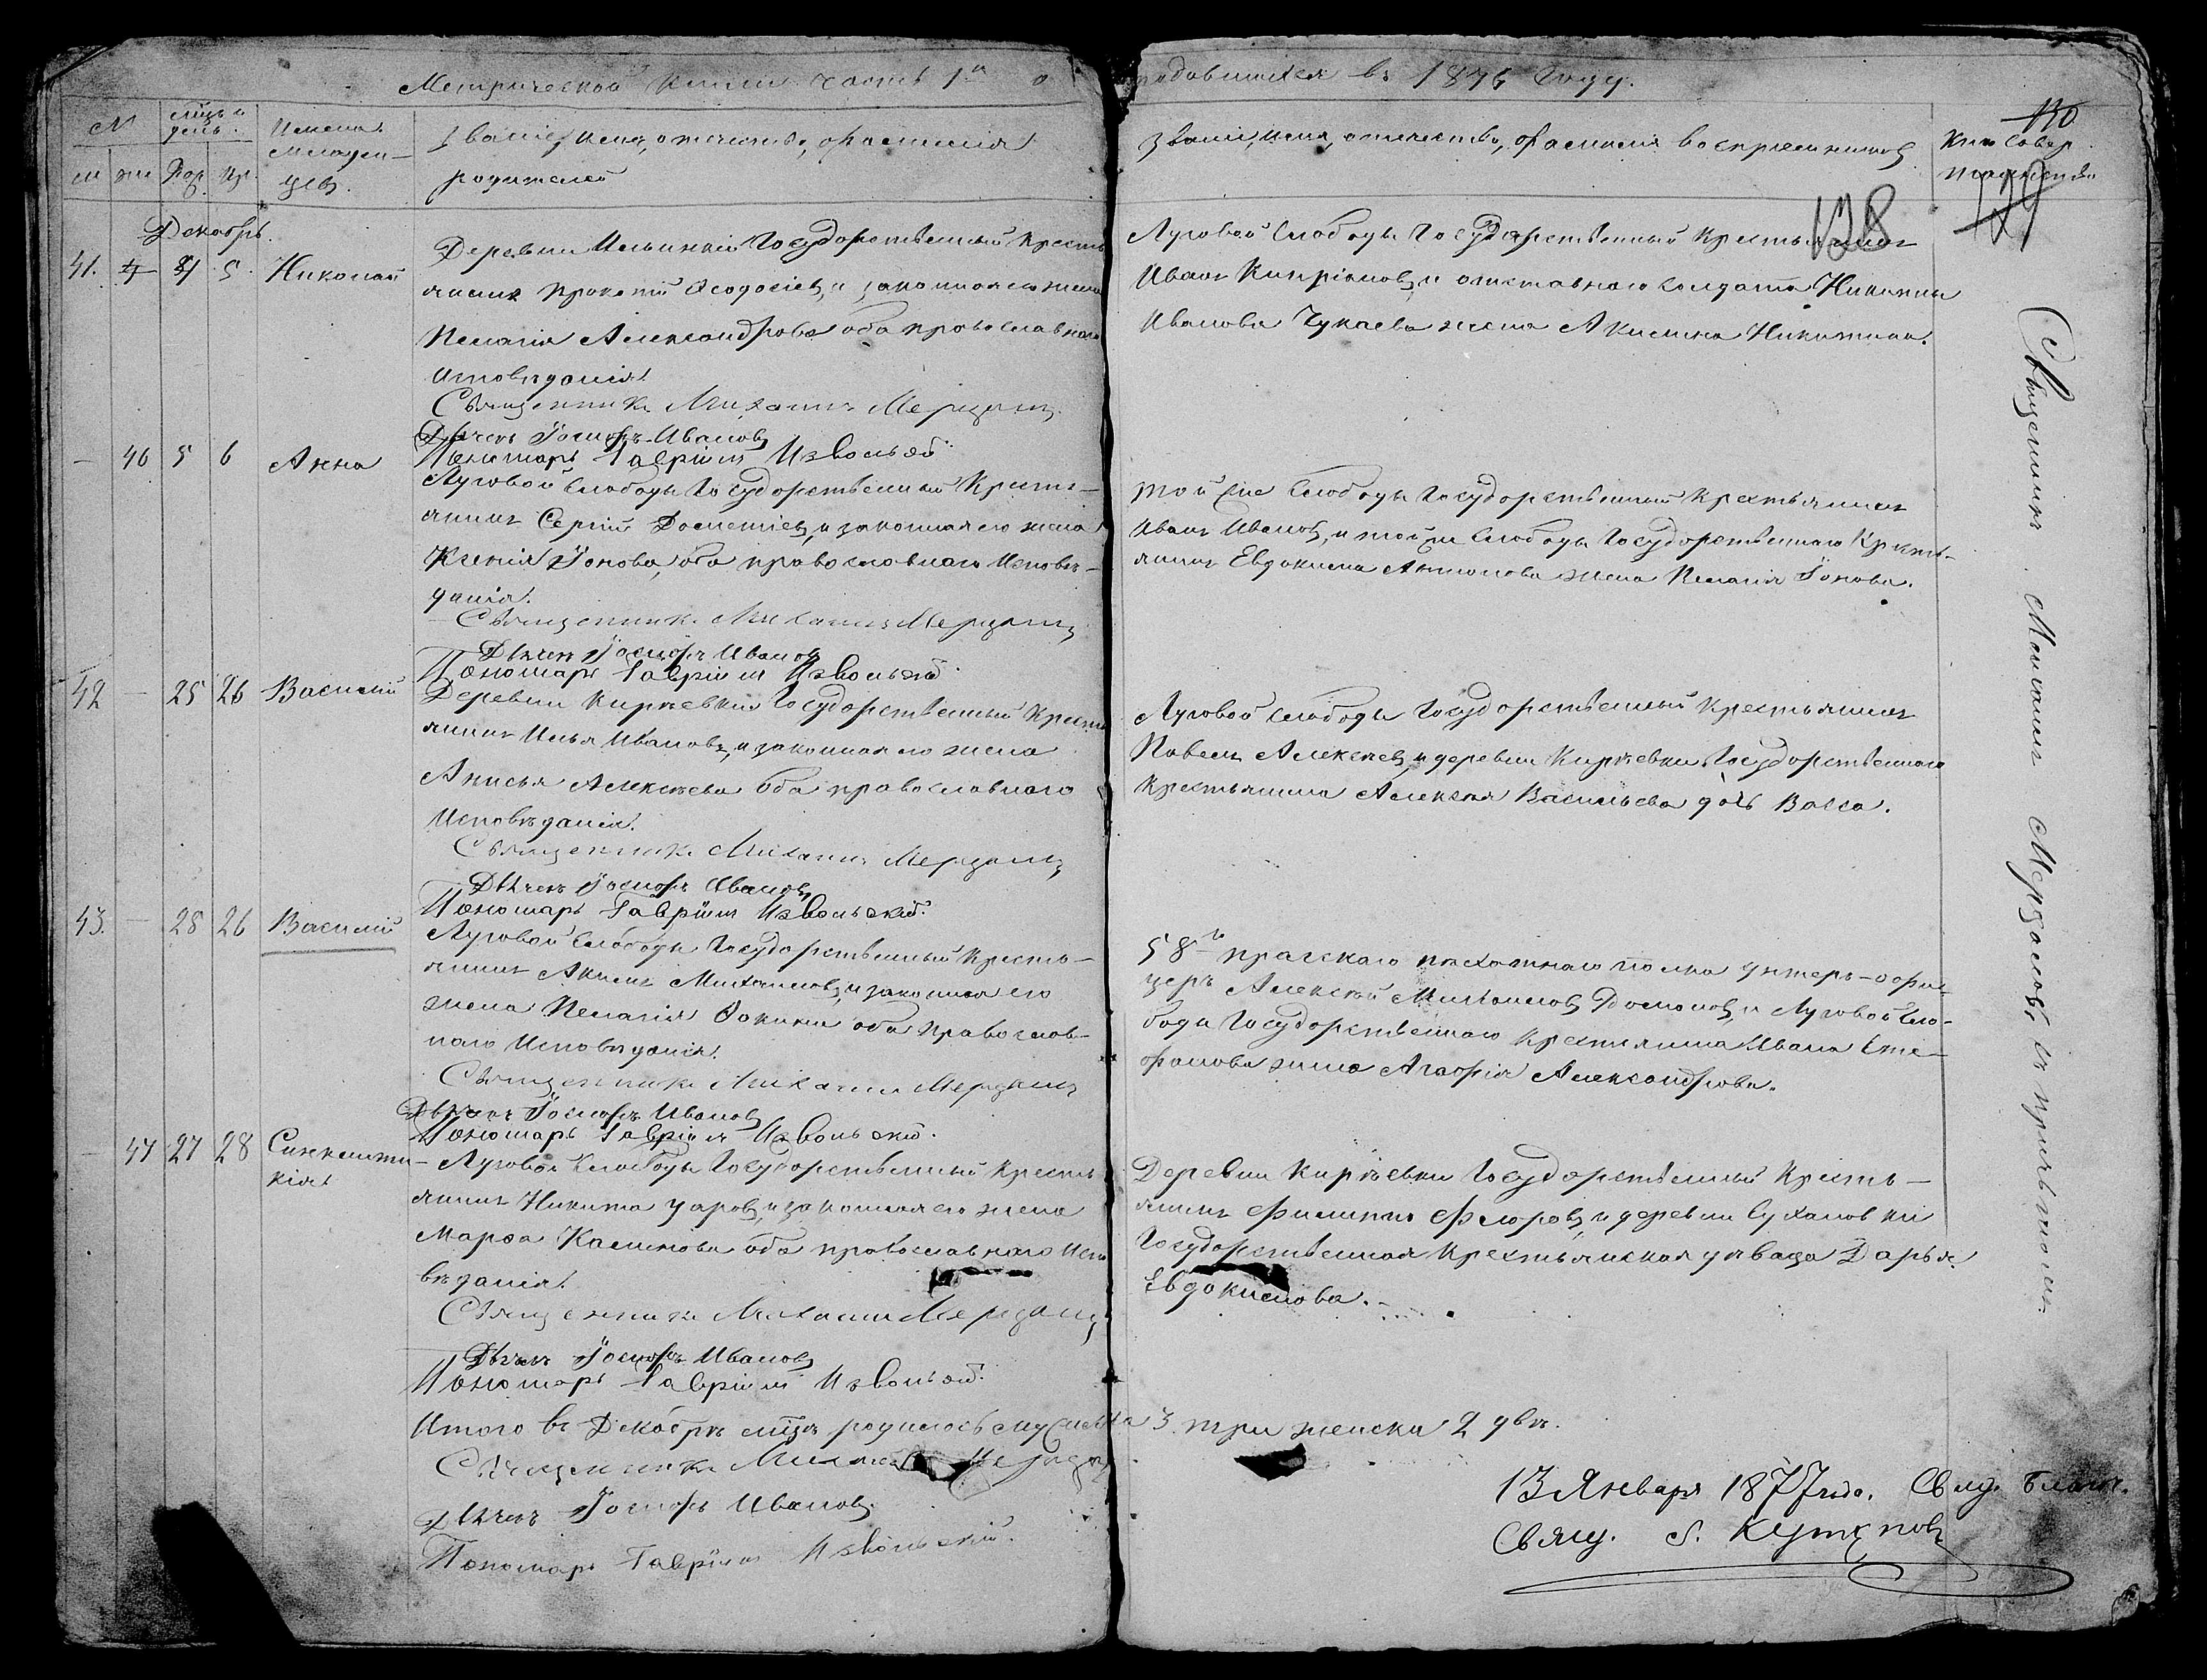 Метрической книги часть 1я о родившихся въ 1876 году.
130
129
128
№
м
ж
мцъ и день.
Рож.
Кр.
Имена младен-
цевъ.
Званіе, имя, отчество, фамилія
родителей
Званіе, имя, отчество, фамилія воспріемниковъ
Кто совер.
таинство
Декабрь.
41. 4 5. Николай
Деревни Ильинки Государственный кресть
янинъ Прокопій Ѳеодосіевъ, и законная его жена
Пелагія Александрова оба православнаго
исповѣданія.
Священникъ Михаилъ Мерцаловъ
Дьячекъ Іосифъ Ивановъ
Пономарь Гавріилъ Извольскій
Луговой слободы Государственный крестьянинъ
Иванъ Кипріановъ, и отставнаго солдата Никиты
Иванова Чукаева жена Акилина Никитина.
— 46 5 6 Анна
Луговой слободы Государственный кресть-
янинъ Сергій Дометіевъ, и законная его жена
Ксенія Іонова, оба православнаго исповѣ-
данія.
Священникъ Михаилъ Мерцаловъ
Дьячекъ Іосифъ Ивановъ
Пономарь Гавріилъ Извольскій
той же слободы Государственный крестьянинъ
Иванъ Ивановъ, и той же слободы Государственнаго кресть-
янина Евдокима Антонова жена Пелагія Іонова.
42 — 25 26 Василій
Деревни Кирѣевки Государственный кресть
янинъ Илья Ивановъ, и законная его жена
Анисья Алексѣева оба православнаго
исповѣданія.
Священникъ Михаилъ Мерцаловъ
Дьячекъ Іосифъ Ивановъ
Пономарь Гавріилъ Извольскій.
Луговой слободы Государственный крестьянинъ
Павелъ Алексѣевъ, и деревни Кирѣевки Государственнаго
крестьянина Алексѣя Васильева дочь Васса.
43. — 25 26 Василій
Луговой слободы Государственный кресть-
янинъ Акимъ Михаиловъ, и законная его
жена Пелагія Фокина оба православ-
наго исповѣданія.
Священникъ Михаилъ Мерцаловъ
Дьячекъ Іосифъ Ивановъ
Пономарь Гавріилъ Извольскій.
58го Прагскаго пѣхотнаго полка унтеръ-офи-
церъ Алексѣй Михаиловъ и Луговой сло-
боды Государственнаго крестьянина Ивана Сте-
фанова жена Агафія Александрова.
— 47 27 28 Синклити
кія
Луговой слободы Государственный кресть
янинъ Никита Уаровъ, и законная его жена
Марѳа Калинова оба православнаго испо
вѣданія.
Священникъ Михаилъ Мерцаловъ
Дьячекъ Іосифъ Ивановъ
Пономарь Гавріилъ Извольскій.
Деревни Кирѣевки Государственный кресть-
янинъ Филиппъ Флоровъ, и деревни Сухановки
Государственная крестьянская дѣвица Дарья
Евдокимова.
Священникъ Михаилъ Мерцаловъ съ причтомъ.
Итого въ Декабрѣ мцѣ родилось мужеска 3 три женска 2 двѣ.
Священникъ Михаилъ Мерцаловъ
Дьячекъ Іосифъ Ивановъ.
Пономарь Гавріилъ Извольскій.
13 Января 1877 года. Свид. Благоч.
Свящ. Кутеповъ